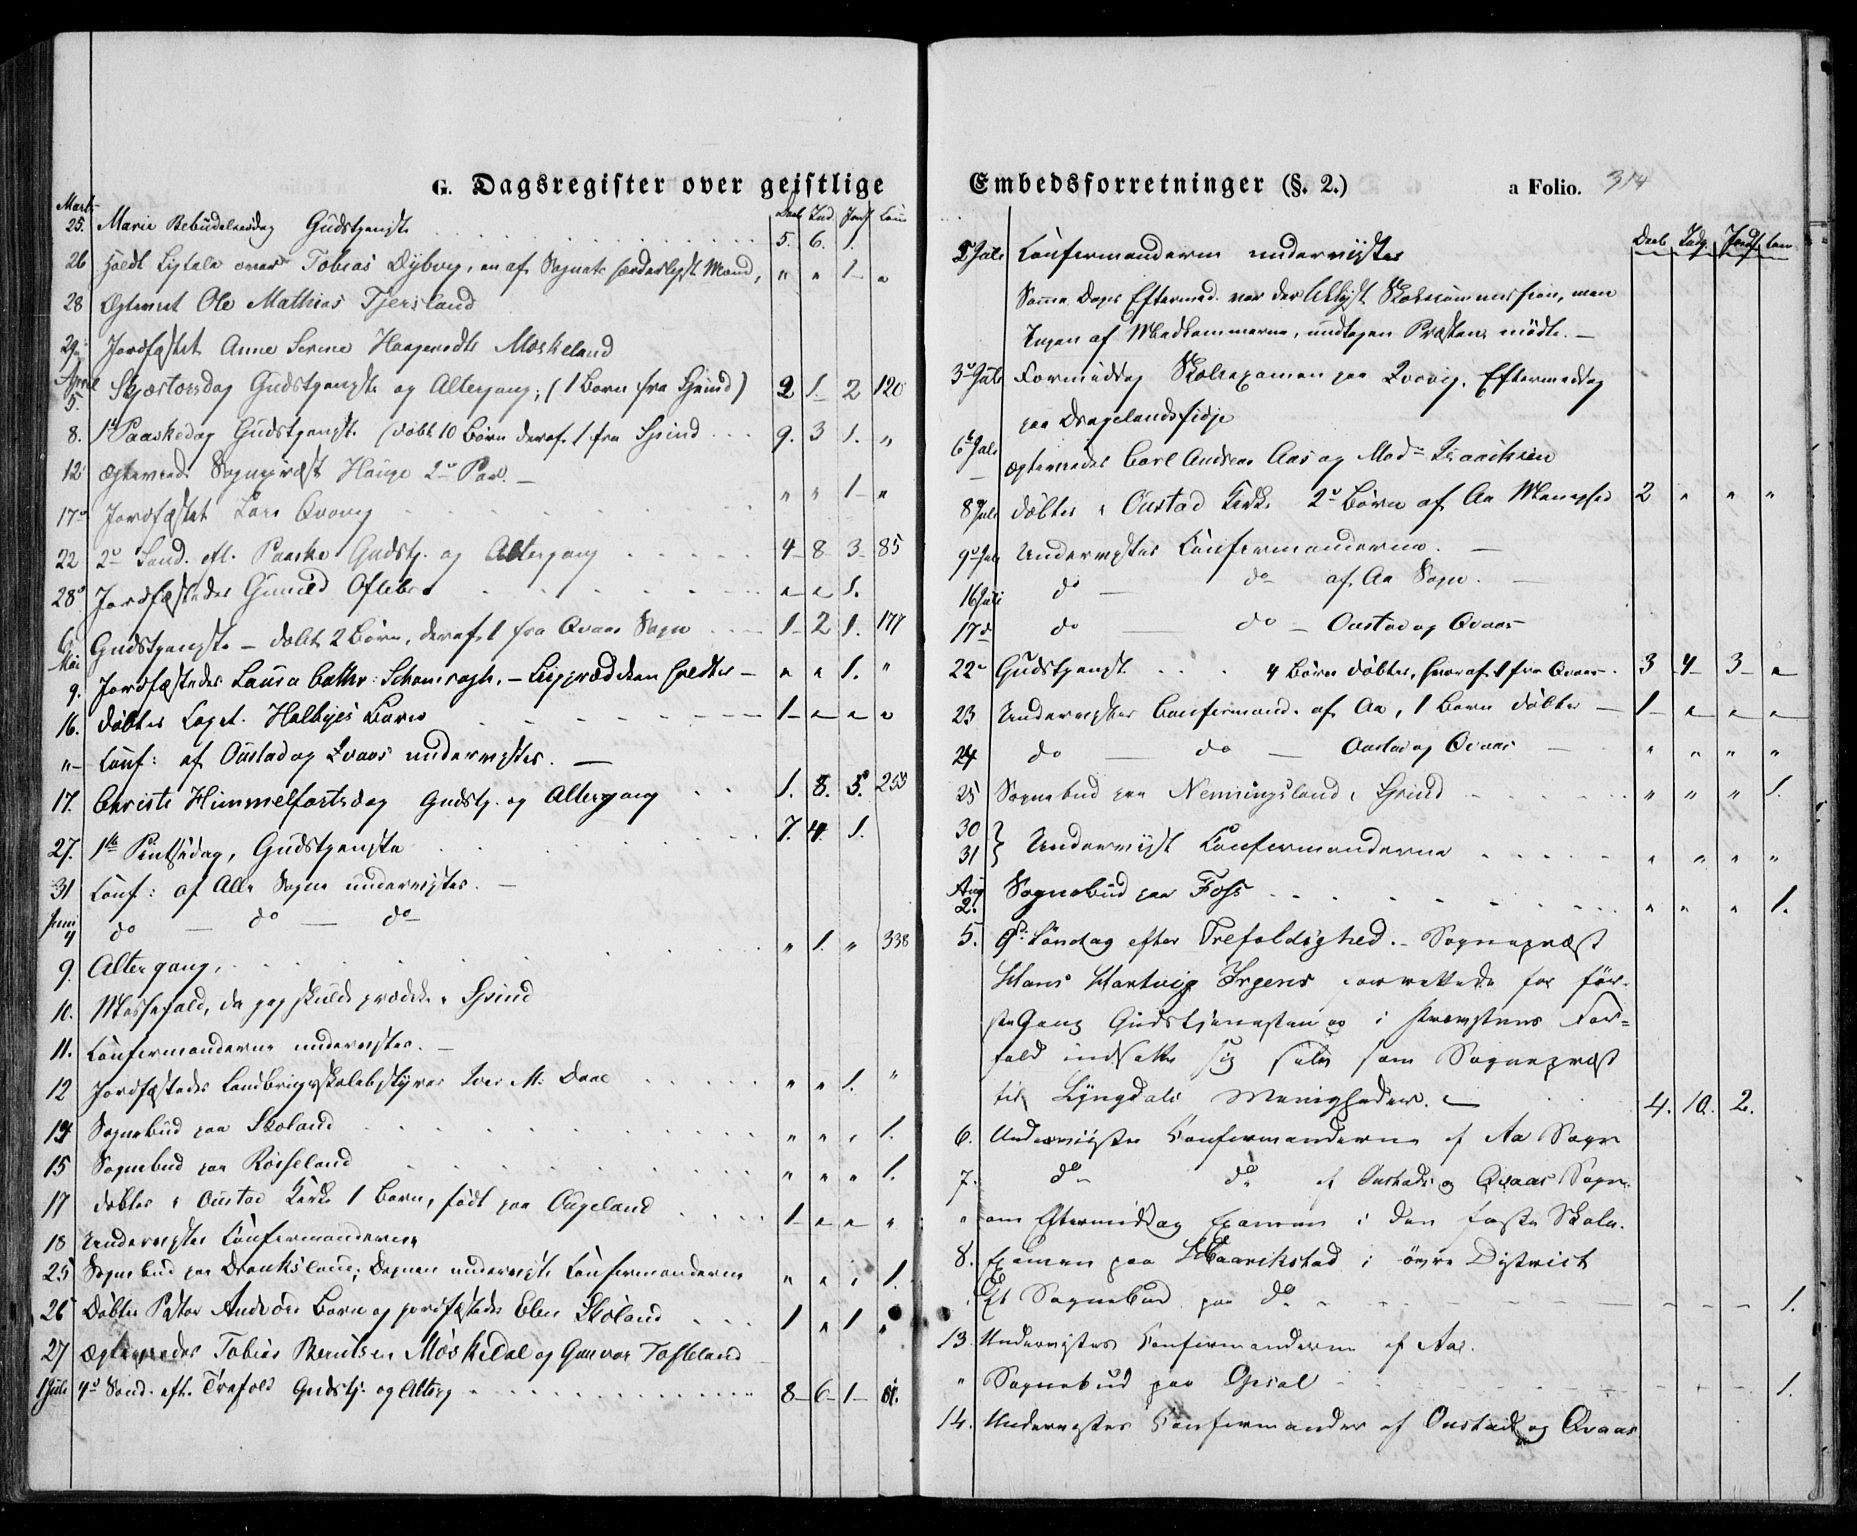 G. Dagsregister over geistlige
Marts Daab Ind. Jordf. Com
25. Marie Bebudelsesdag Gudstjeneste 5. 6. 1.
26 Holdt Ligtale over Tobias Dybvig, en af Sognets hæderligste Mænd, " " 1 "
28 Ægteviet Ole Mathias Tjersland
29 Jordfæstet Anne Serine Haagensdtr Moskeland
April
5. Skjærtorsdag Gudstjeneste og Altergang, (1 Barn fra Spind) 2 1. 2 120
8. 1ste Paaskedag Gudstjeneste (døbt 10 Børn deraf 1 fra Spind 9. 3 1. "
12 Ægteviede Sognepræst Hauge 2de Par. —
17de Jordfæstet Lars Qvavig " " 1 "
22 2den Sønd. eft. Paaske Gudstj. og Altergang 4 8 3 85
28de Jordfæstedes Gunild Oftebro " " 1.
6 Mai Gudstjeneste — døbt 2 Børn, deraf 1 fra Qvaas Sogn 1 2 1. 177
9. Jordfæstedes Laura Cathr: — Ligprædiken holdtes — " " 1. "
16. døbtes Barn 1 " " "
" — Conf: af Oustad og Qvaas undervistes. —
17. Christi Himmelfartsdag Gudstj. og Altergang 1. 8. 3. 253
27. 1ste Pintsedag, Gudstjeneste 7. 4. 1.
31 Conf: af Alle Sogne undervistes. —
Juni
4 do — do — do
9. Altergang. " 1. " 338
10. Messefald, da jeg skulde prædike i Spind
11. Confirmanderne undervistes. —
12 Jordfæstedes Landbrugsskolebestyrer Iver M. Daae " " 1. "
14 Sognebud paa Skoland " " " 1.
15 Sognebud paa Røiseland " " " 1.
17 døbtes i Oustad Kirke 1 Barn, født paa Augeland 1 " " "
18 Undervistes Confirmanderne
25 Sognebud paa Dranksland; Dagen undervist Confirmanderne " " " 1.
26 Døbtes Barn og jordfæstedes Elen Skoland 1 " 1 "
27 Ægteviedes Tobias Berntsen Møskedal og Gunvor Tofteland
1 Juli 4de Sønd. eft. Trefold. Gudstj. og Alterg. 8 6 1 81.
Embedsforretninger (§. 2.) a Folio. 314
Daab Indg. Jordf. Com
2 Juli Confirmanderne undervistes
Samme Dags Eftermid. var der berlyst Skolecommission, men
Ingen af Medlemmerne, undtagen Præsten mødte. —
3de Juli Formiddag Skoleexamen paa Qvavig, Eftermiddag
paa Drageland
6te Juli ægteviedes Carl Andreas Aas og Mad. Isaachsen
8 Juli døbtes i Oustad Kirke 2de Børn af Aa Menighed 2 " " "
9de Juli Undervistes Confirmanderne. —
16 Juli do — do af Aa Sogn. —
17de do — do — Oustad og Qvaas
22de Gudstjenest. 4 Børn døbtes, hvoraf 1 fra Qvaas. 3 4 3 "
23 Undervistes Confirmand. af Aa, 1 Barn døbtes — 1 " " "
24 do — do — Oustad og Qvaas — " " " "
25 Sognebud paa Nenningsland, Spind " " " 1.
30
31 } Undervist Confirmanderne " " " "
Aug
2. Sognebud paa Foss " " " 1.
5. 9de Søndag efter Trefoldighed. — Sognepræst
Hans Hartvig Irgens forrettede for før-
ste Gang Gudstjenesten og i Provstens For-
fald indsatte sig selv som Sognepræst
til Lyngdals Menigheder. — 4. 10. 2.
6. Undervistes Confirmanderne af Aa Sogn
7. do do af Oustads og Qvaas Sogne.
" om Eftermiddag Examen i den faste Skole.
8. Examen paa Haarikstad i øvre District
Et Sognebud paa do 1.
13. Undervistes Confirmanderne af Aa.
" Sognebud paa 1.
14. Undervistes Confirmander af Oustad og Qvaas